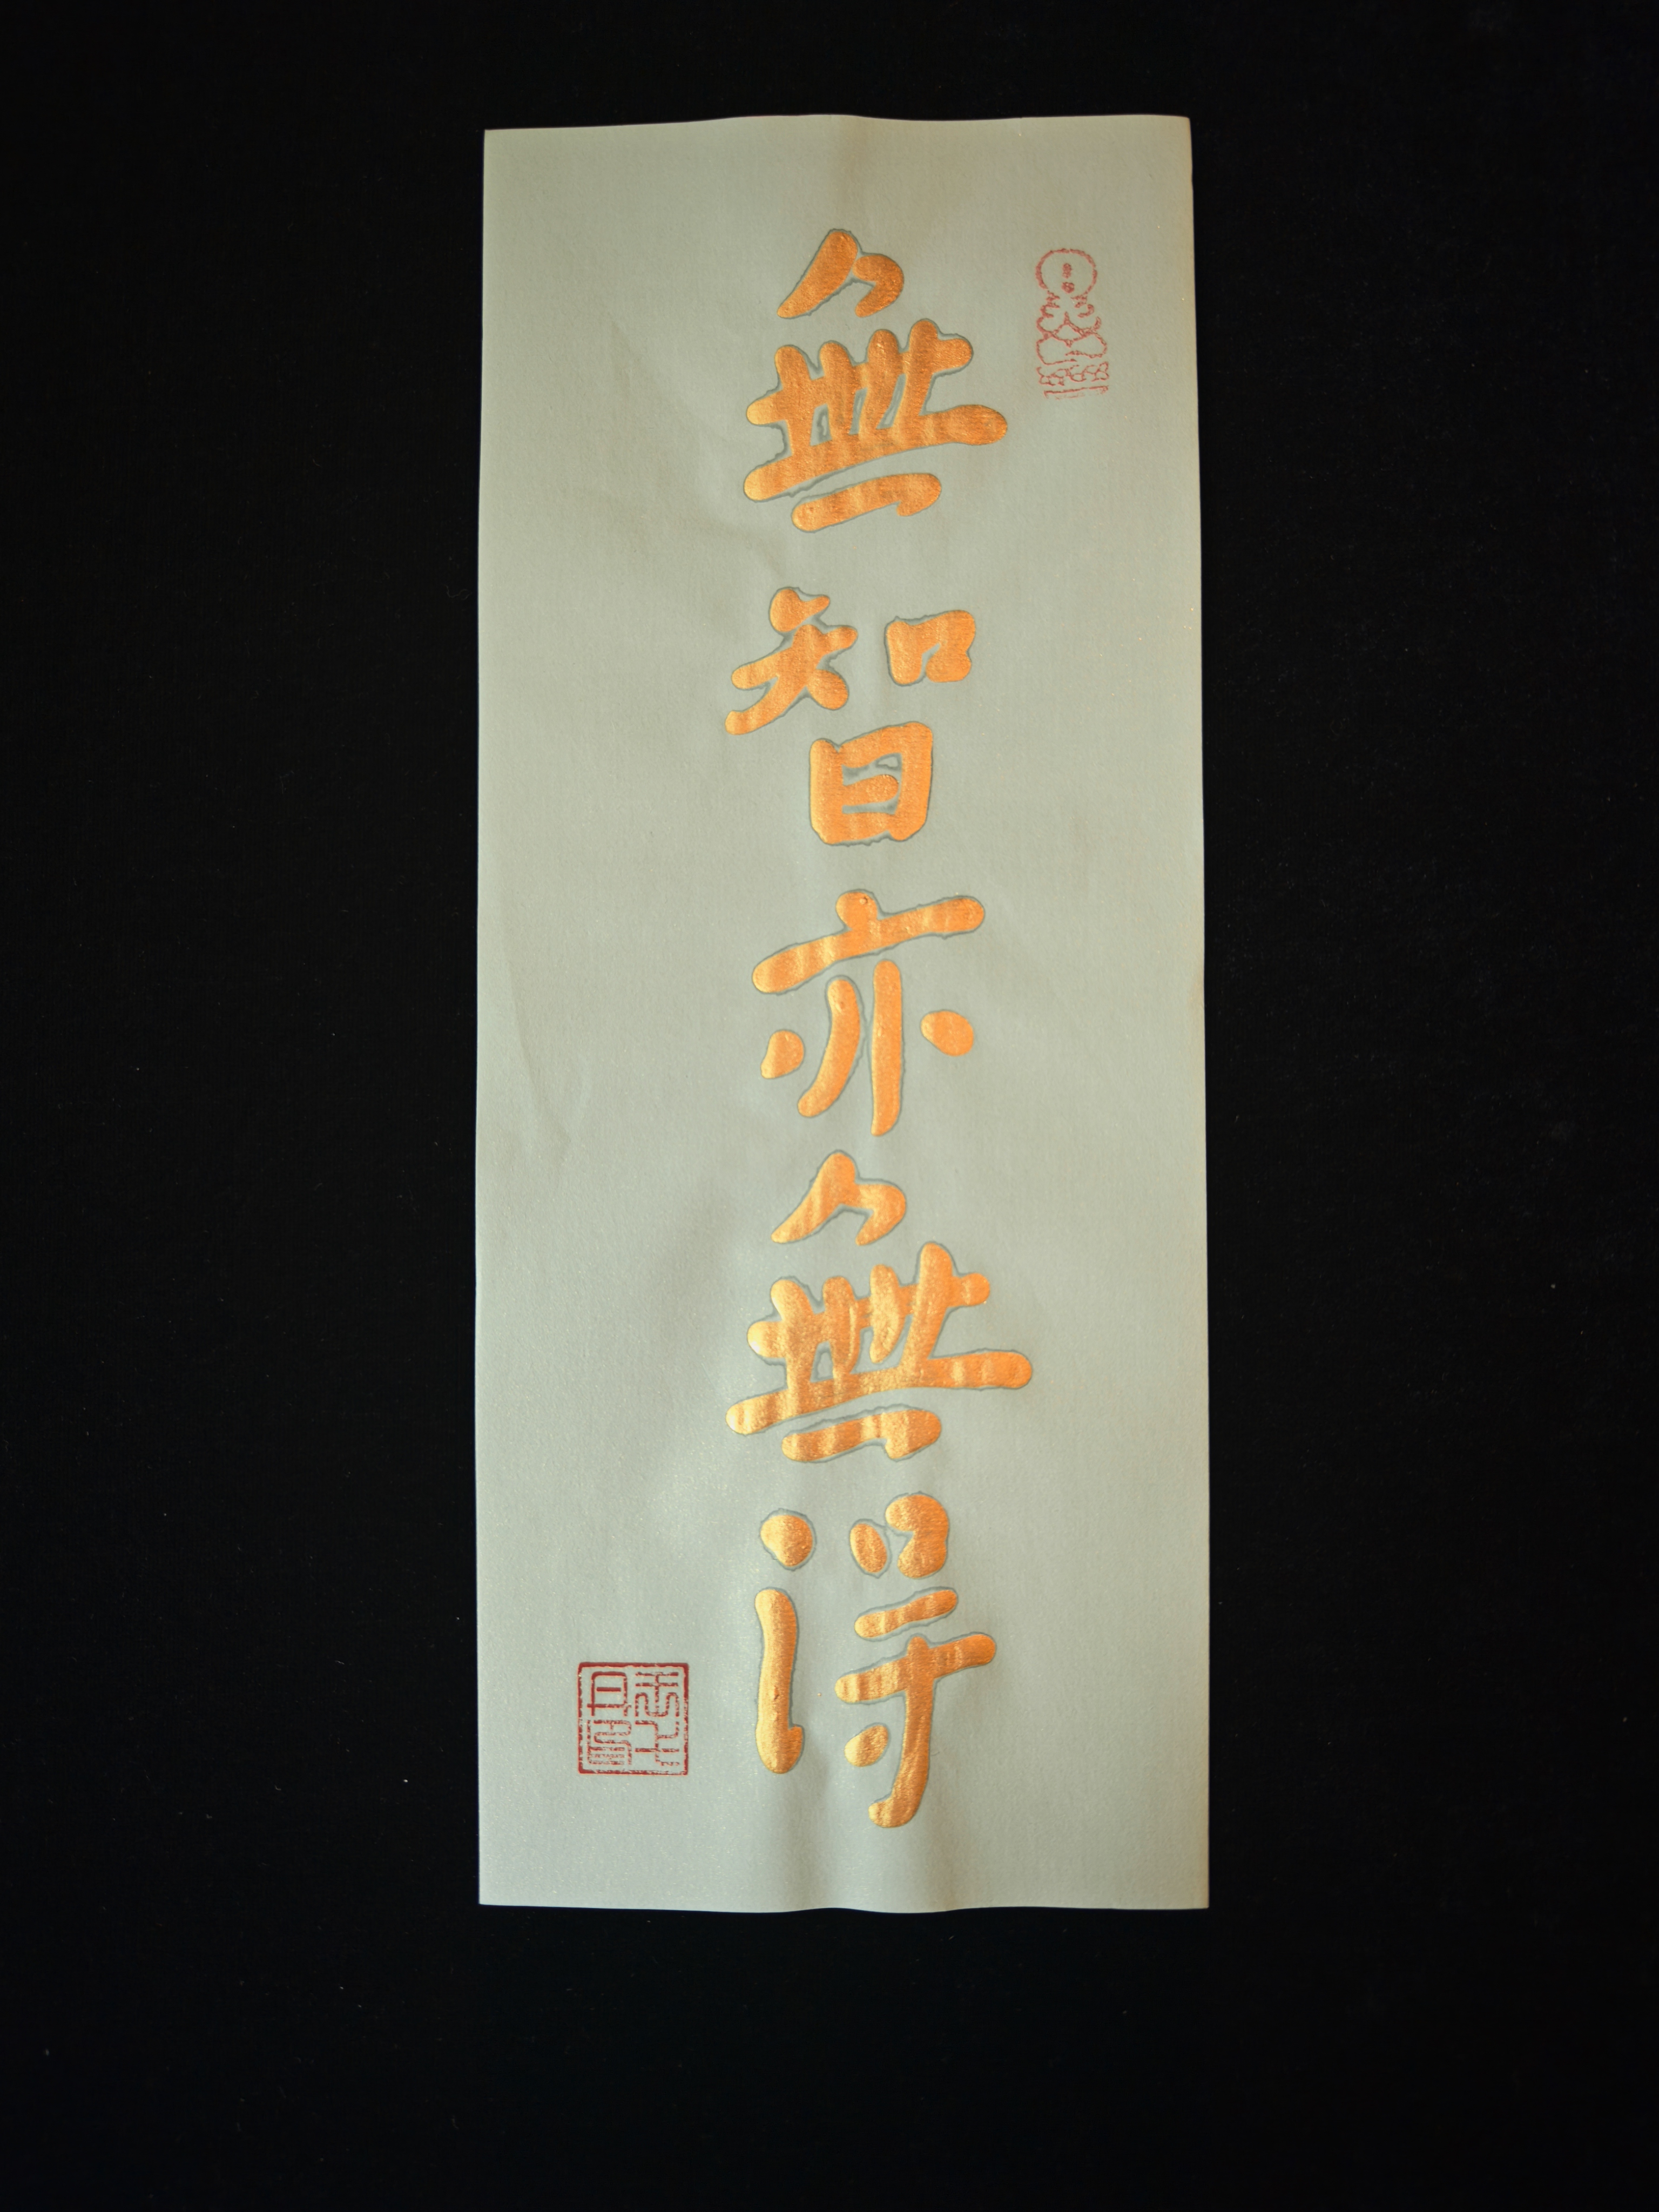 無智亦無得